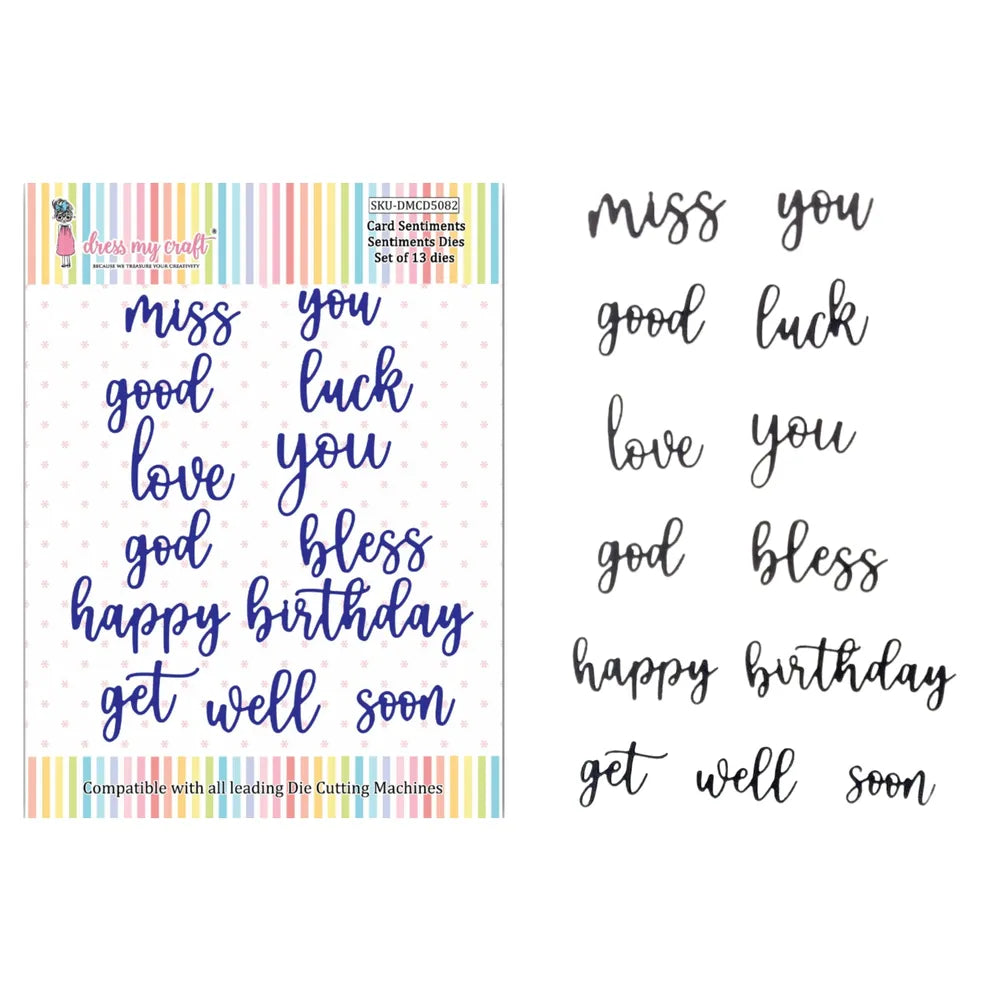 SKU-DMCD5082
dress my craft®
BECAUSE WE TREASURE YOUR CREATIVITY
Card Sentiments
Sentiments Dies
Set of 13 dies
miss you
good luck
love you
god bless
happy birthday
get well soon
Compatible with all leading Die Cutting Machines
miss you
good luck
love you
god bless
happy birthday
get well soon